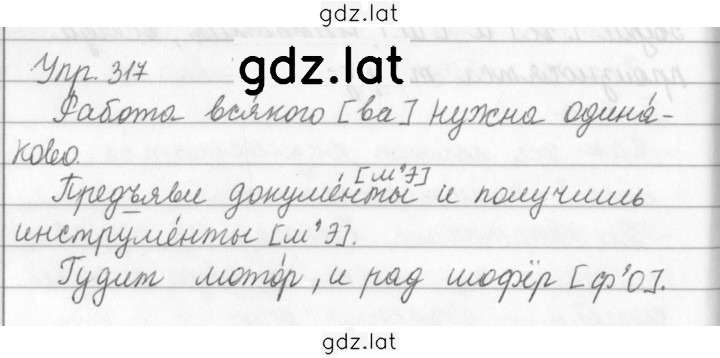 gdz.lat
Упр. 317
gdz.lat
Работа вся́кого [ва] нужна одина́-
ково.
[м'Э]
Предъяви докуме́нты и получишь
инструме́нты [м'Э].
Гудит мото́р, и рад шофёр [ф'О].
gdz.lat